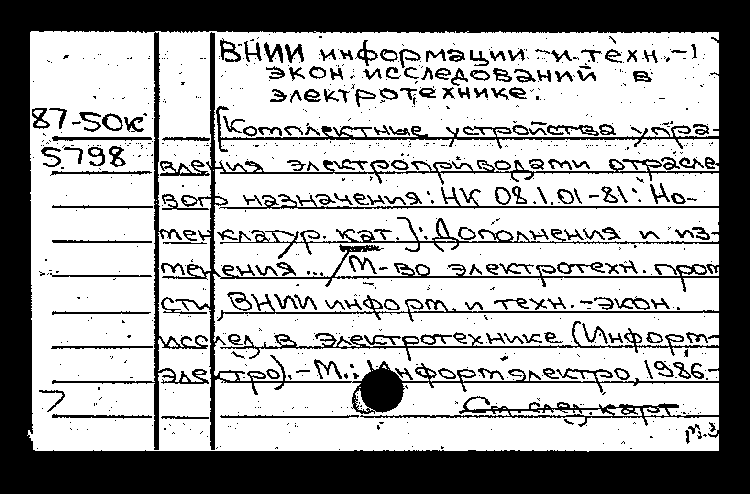 ВНИИ информации и техн.-
экон. исследований в
электротехнике.
87-50К [Комплектные устройства упра-
5798 вления электроприводами отрасле
вого назначения: НК 08.1.01-81: Но-
менклатур. кат.]: Дополнения и из-
менения ... / М-во электротехн. пром
сти, ВНИИ информ. и техн.-экон.
исслед. в электротехнике (Информ-
электро).-М.: Информэлектро, 1986.-
См. след. карт.